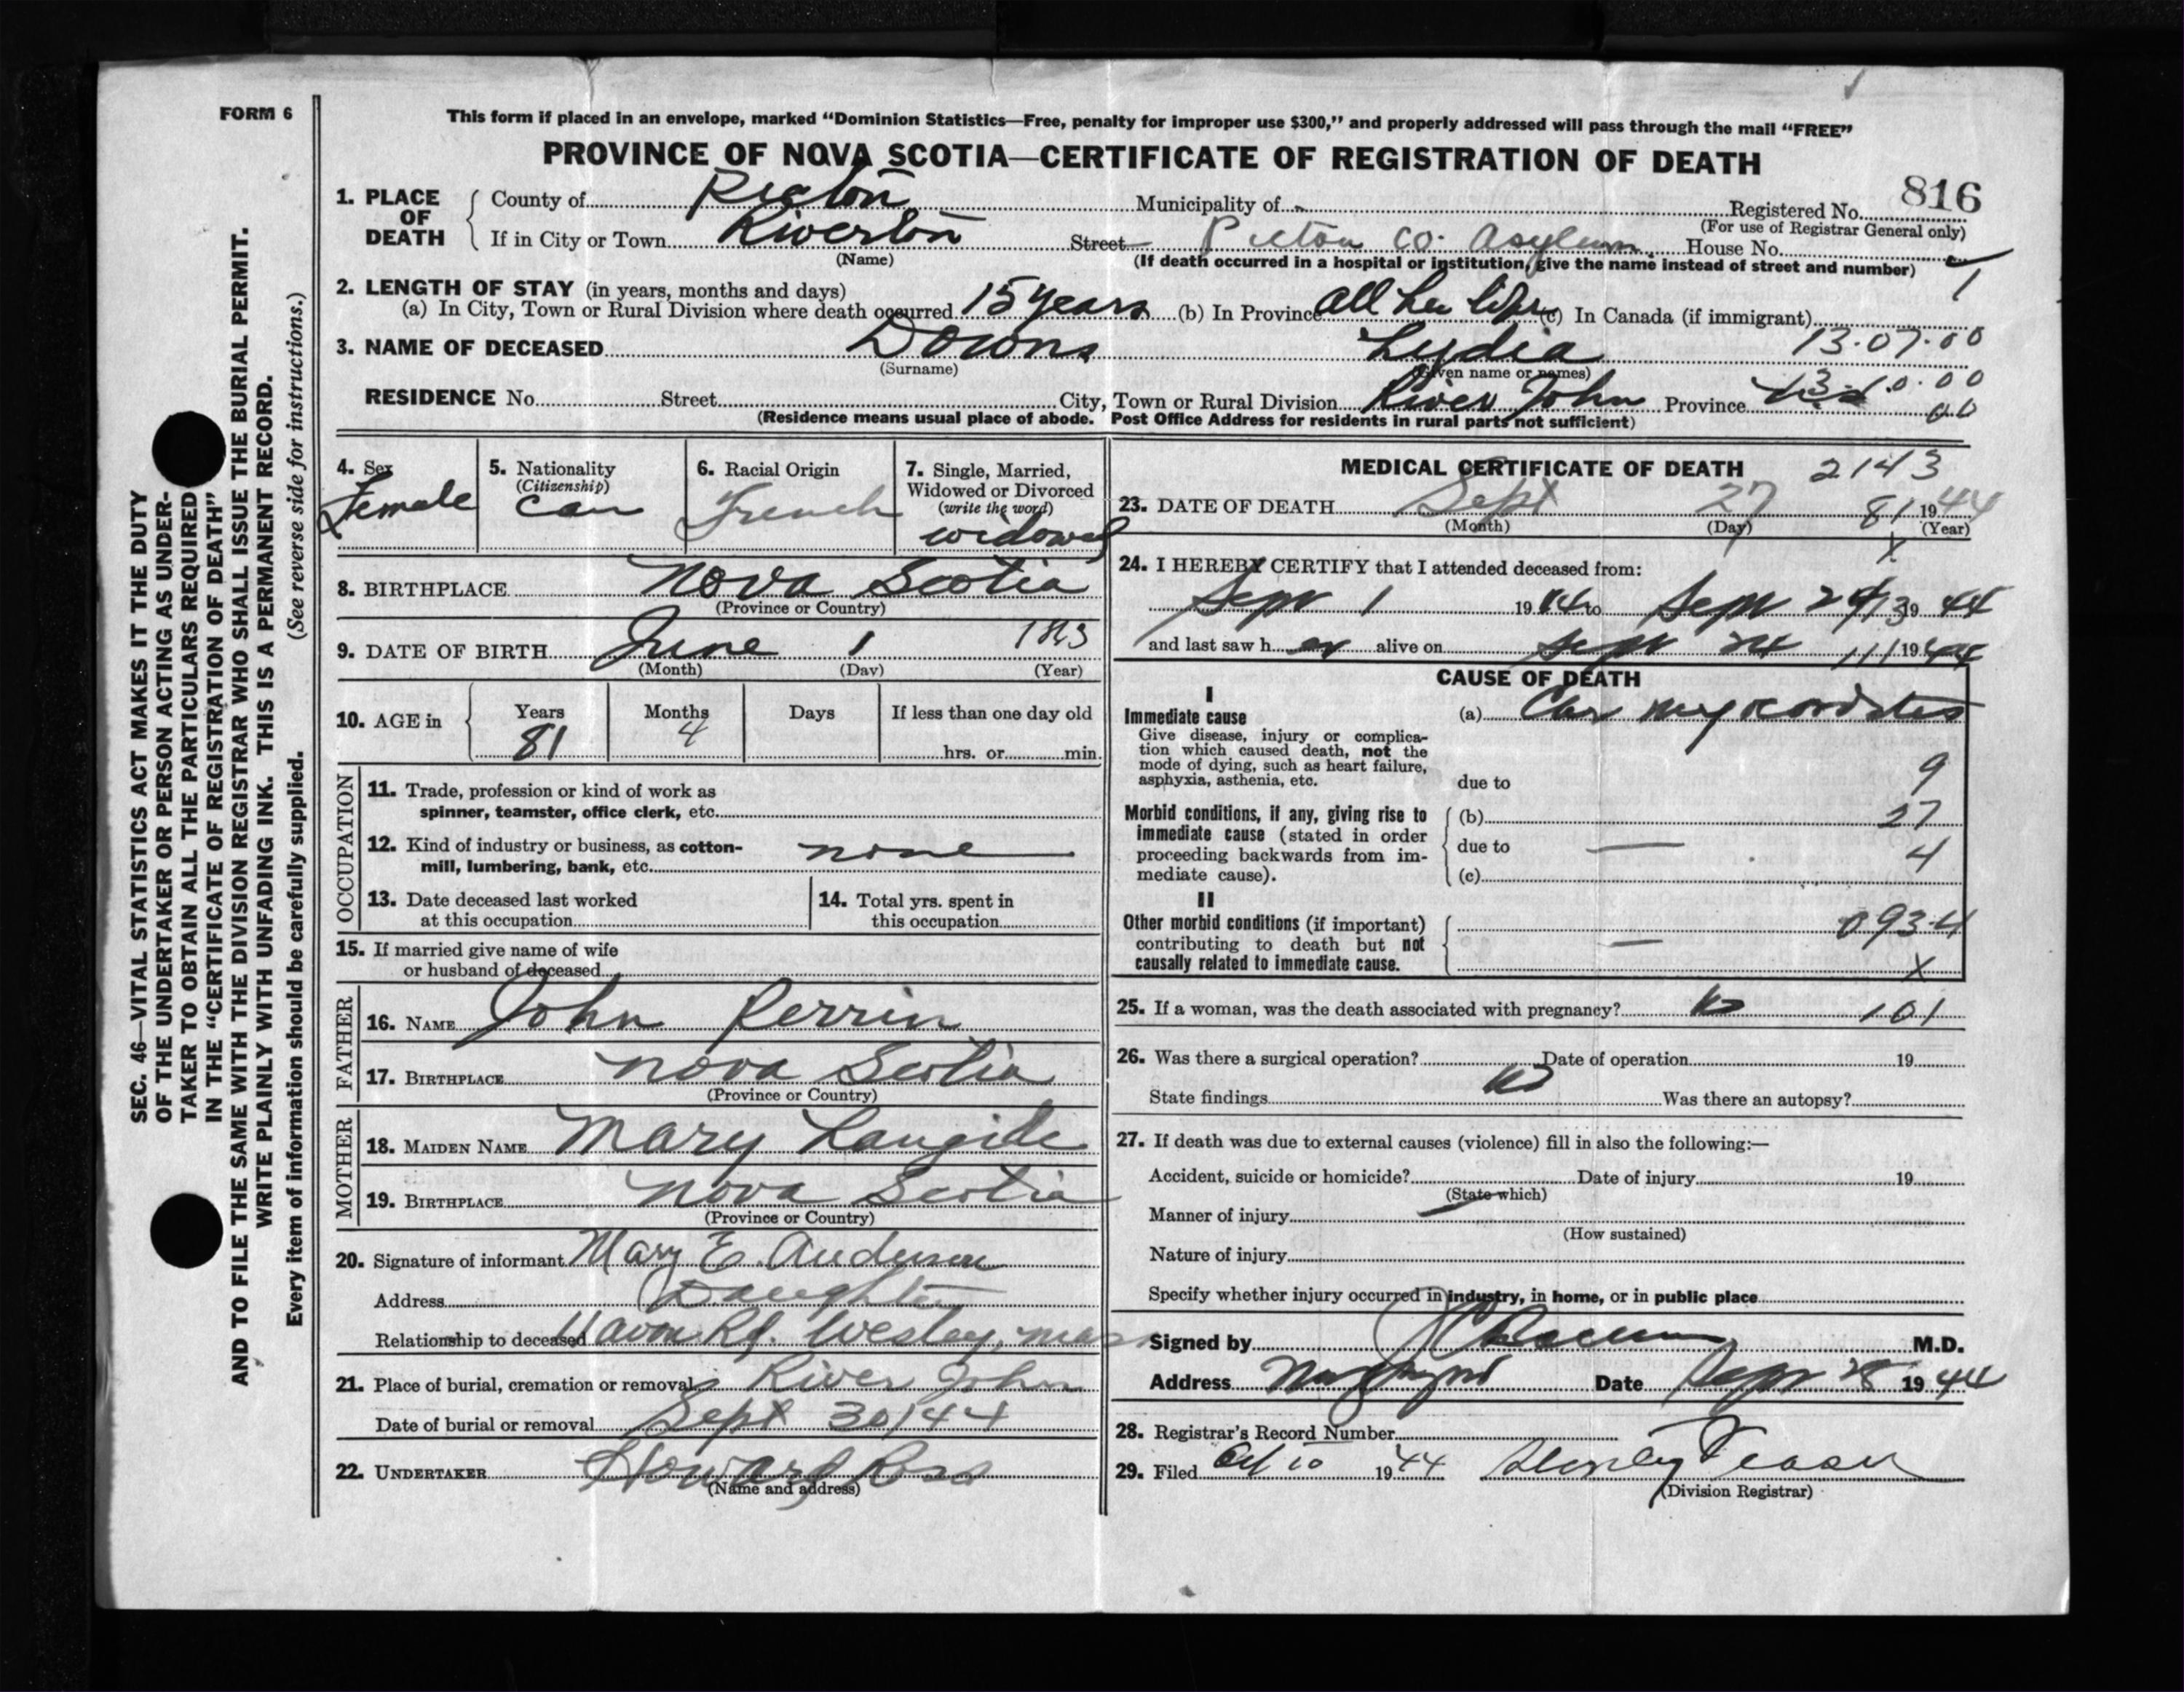 FORM 6
This form if placed in an envelope, marked "Dominion Statistics—Free, penalty for improper use $300," and properly addressed will pass through the mail "FREE"
PROVINCE OF NOVA SCOTIA—CERTIFICATE OF REGISTRATION OF DEATH
816
1. PLACE OF DEATH County of Pictou Municipality of Registered No.
(For use of Registrar General only)
If in City or Town Riverton Street Pictou Co. Asylum House No.
(Name) (If death occurred in a hospital or institution, give the name instead of street and number)
2. LENGTH OF STAY (in years, months and days)
(a) In City, Town or Rural Division where death occurred 15 years (b) In Province all her life (c) In Canada (if immigrant)
3. NAME OF DECEASED Downs Lydia 13.07.00
(Surname) (Given name or names)
RESIDENCE No. Street City, Town or Rural Division River John Province
(Residence means usual place of abode. Post Office Address for residents in rural parts not sufficient)
4. Sex Female
5. Nationality (Citizenship) Can
6. Racial Origin French
7. Single, Married, Widowed or Divorced (write the word) widowed
8. BIRTHPLACE Nova Scotia
(Province or Country)
9. DATE OF BIRTH June 1 1863
(Month) (Day) (Year)
10. AGE in Years 81 Months 4 Days If less than one day old hrs. or min.
OCCUPATION
11. Trade, profession or kind of work as spinner, teamster, office clerk, etc.
12. Kind of industry or business, as cotton-mill, lumbering, bank, etc. none
13. Date deceased last worked at this occupation
14. Total yrs. spent in this occupation
15. If married give name of wife or husband of deceased
FATHER
16. NAME John Perrin
17. BIRTHPLACE Nova Scotia
(Province or Country)
MOTHER
18. MAIDEN NAME Mary Langille
19. BIRTHPLACE Nova Scotia
(Province or Country)
20. Signature of informant Mary E. Anderson
Address Daughter
Relationship to deceased Rd. Wesley, mass
21. Place of burial, cremation or removal River John
Date of burial or removal Sept 30/44
22. UNDERTAKER Howard Ross
(Name and address)
MEDICAL CERTIFICATE OF DEATH 2143
23. DATE OF DEATH Sept 27 81 1944
(Month) (Day) (Year)
X
24. I HEREBY CERTIFY that I attended deceased from:
Sept 1 1944 to Sept 24 1944
and last saw her alive on Sept 24 1944
CAUSE OF DEATH
I
Immediate cause (a) Chr myocarditis
Give disease, injury or complication which caused death, not the mode of dying, such as heart failure, asphyxia, asthenia, etc.
due to
9
Morbid conditions, if any, giving rise to immediate cause (stated in order proceeding backwards from immediate cause).
(b) 27
due to — 4
(c)
II
Other morbid conditions (if important) contributing to death but not causally related to immediate cause.
093.4
— X
25. If a woman, was the death associated with pregnancy? No 101
26. Was there a surgical operation? Date of operation 19
State findings No Was there an autopsy?
27. If death was due to external causes (violence) fill in also the following:—
Accident, suicide or homicide? Date of injury 19
(State which)
Manner of injury
(How sustained)
Nature of injury
Specify whether injury occurred in industry, in home, or in public place
Signed by M.D.
Address Date Sept 28 1944
28. Registrar's Record Number
29. Filed Oct 10 1944
(Division Registrar)
SEC. 46—VITAL STATISTICS ACT MAKES IT THE DUTY
OF THE UNDERTAKER OR PERSON ACTING AS UNDER-
TAKER TO OBTAIN ALL THE PARTICULARS REQUIRED
IN THE "CERTIFICATE OF REGISTRATION OF DEATH"
AND TO FILE THE SAME WITH THE DIVISION REGISTRAR WHO SHALL ISSUE THE BURIAL PERMIT.
WRITE PLAINLY WITH UNFADING INK. THIS IS A PERMANENT RECORD.
Every item of information should be carefully supplied. (See reverse side for instructions.)